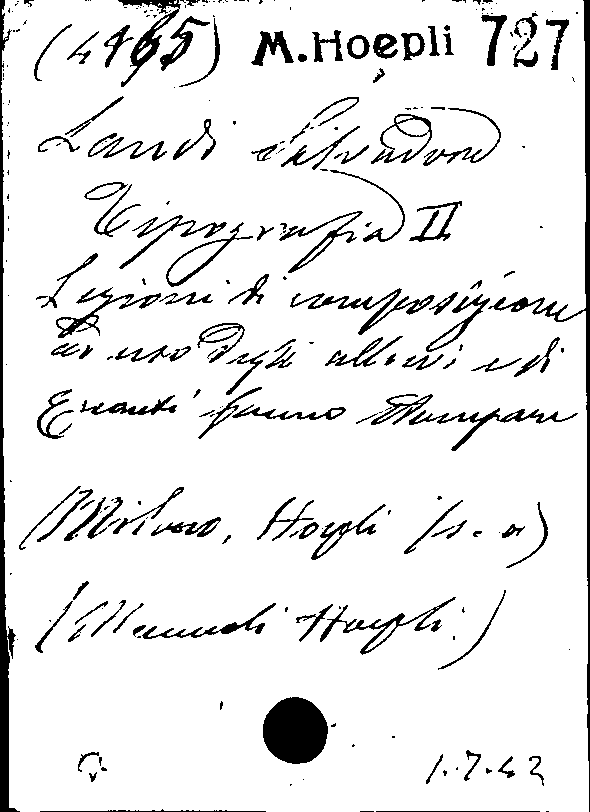 (4465) M.Hoepli 727
Landi Salvadore
Tipografia II
Lezioni di composizione
ad uso degli allievi e di
quanti fanno stampare
(Milano, Hoepli (s. a)
(Manuali Hoepli.)
1.7.42